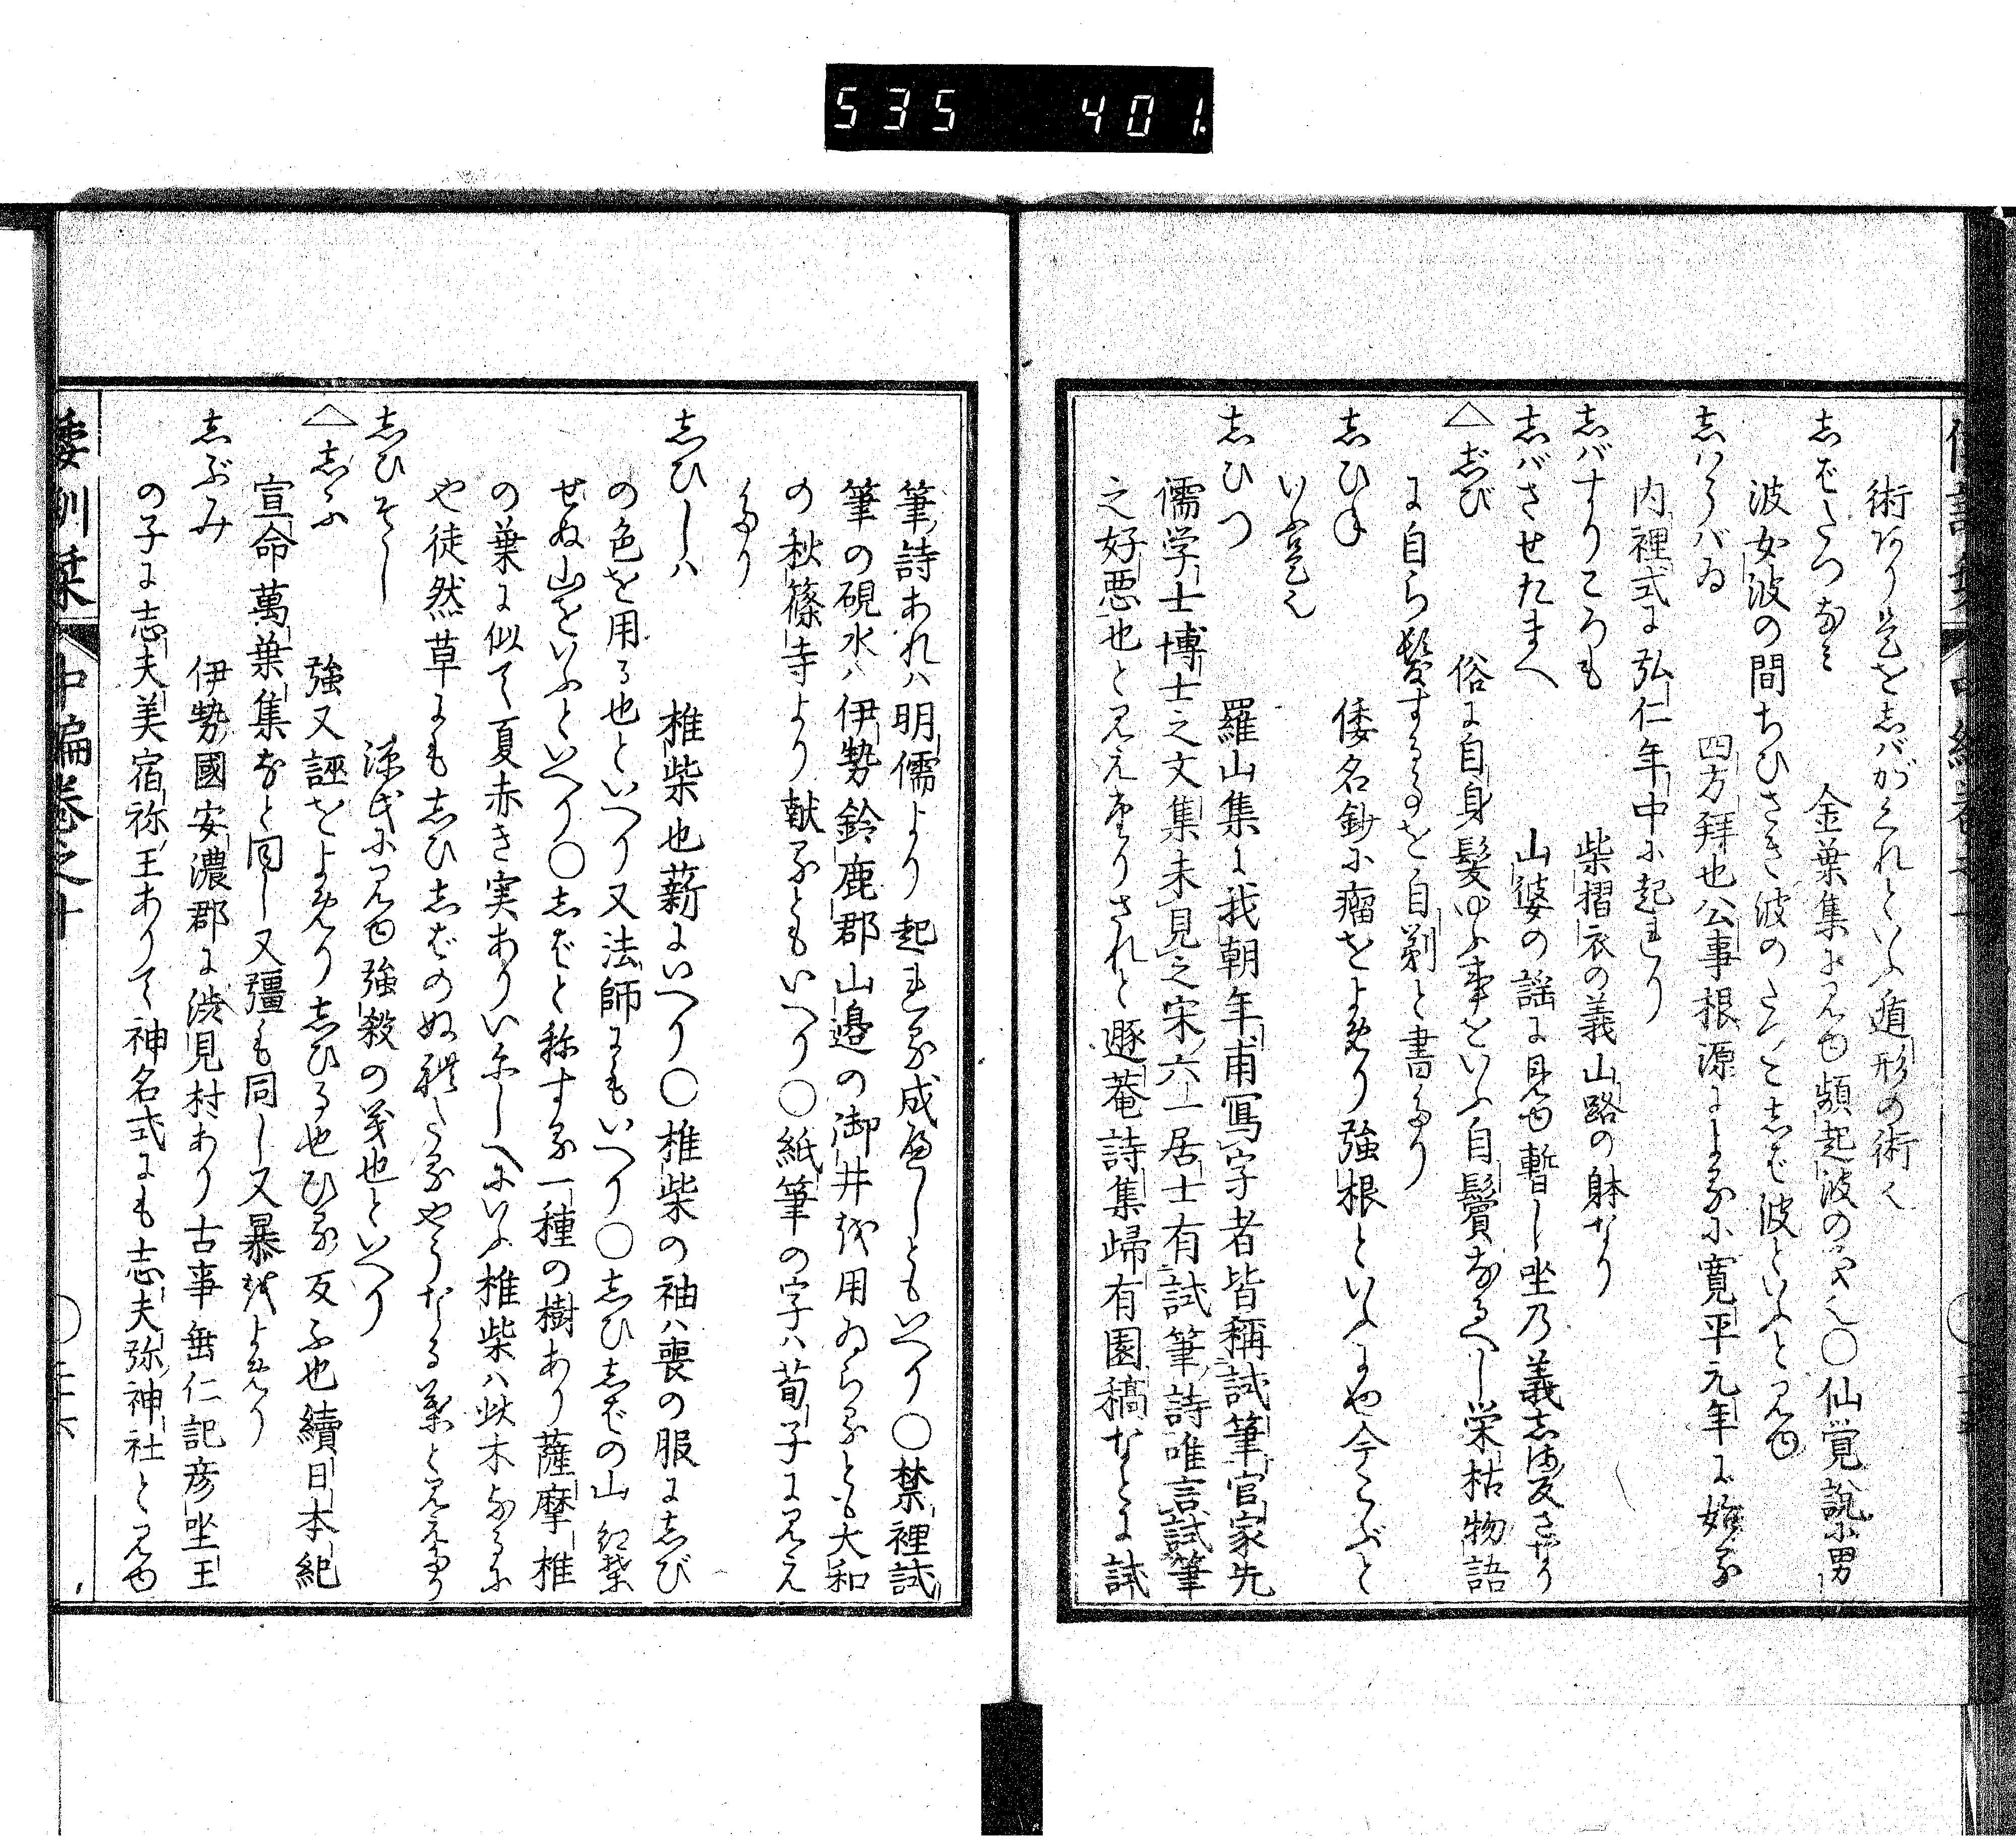 535 401.
術あり是をしバがくれといふ遁形の術也
志ばたつなミ 金葉集に見ゆ頻起波の義也〇仙覚説に男
波女波の間ちひさき波のたつをしば波といふと見ゆ
志ハうバゐ 四方拜也公事根源によるに寛平元年に始る
内裡式に弘仁年中に起れり
志バすりころも 柴摺衣の義山路の躰なり
志バさせたまへ 山婆の謡に見ゆ暫し坐乃義志ま反さなり
△志び 俗に自身髪ゆふ事をいふ自鬢なるべし栄枯物語
に自ら髪するるを自剃と書たり
志ひね 倭名鈔に瘤をよめり強根といふにや今こぶと
いふ是也
志ひつ 羅山集に我朝年甫冩字者皆稱試筆官家先
儒学士博士之文集未見之宋六一居士有試筆詩唯言試筆
之好悪也と見えたりされと遯菴詩集歸有園稿なとに試
筆詩あれハ明儒より起れる成べしともいへり〇禁裡試
筆の硯水ハ伊勢鈴鹿郡山邉の御井を用ゐらるとも大和
の秋篠寺より献るともいへり〇紙筆の字ハ荀子に見え
たり
志ひしハ 椎柴也薪にいへり〇椎柴の袖ハ喪の服にしび
の色を用る也といへり又法師にもいへり〇志ひしばの山 紅葉
せぬ山をいふといへり〇志ばと称する一種の樹あり薩摩椎
の葉に似て夏赤き実ありいにしへにいふ椎柴ハ此木なるに
や徒然草にも志ひしばのぬれたるやうなる葉と見えたり
志ひそし 源氏に見ゆ強殺の義也といへり
△志ふ 強又誣をよめり志ひる也ひる反ふ也續日本紀
宣命萬葉集なと同し又彊も同し又暴をよめり
志ぶみ 伊勢國安濃郡に渋見村あり古事垂仁記彦坐王
の子に志夫美宿祢王ありて神名式にも志夫弥神社と見ゆ
倭訓栞 中編巻之十